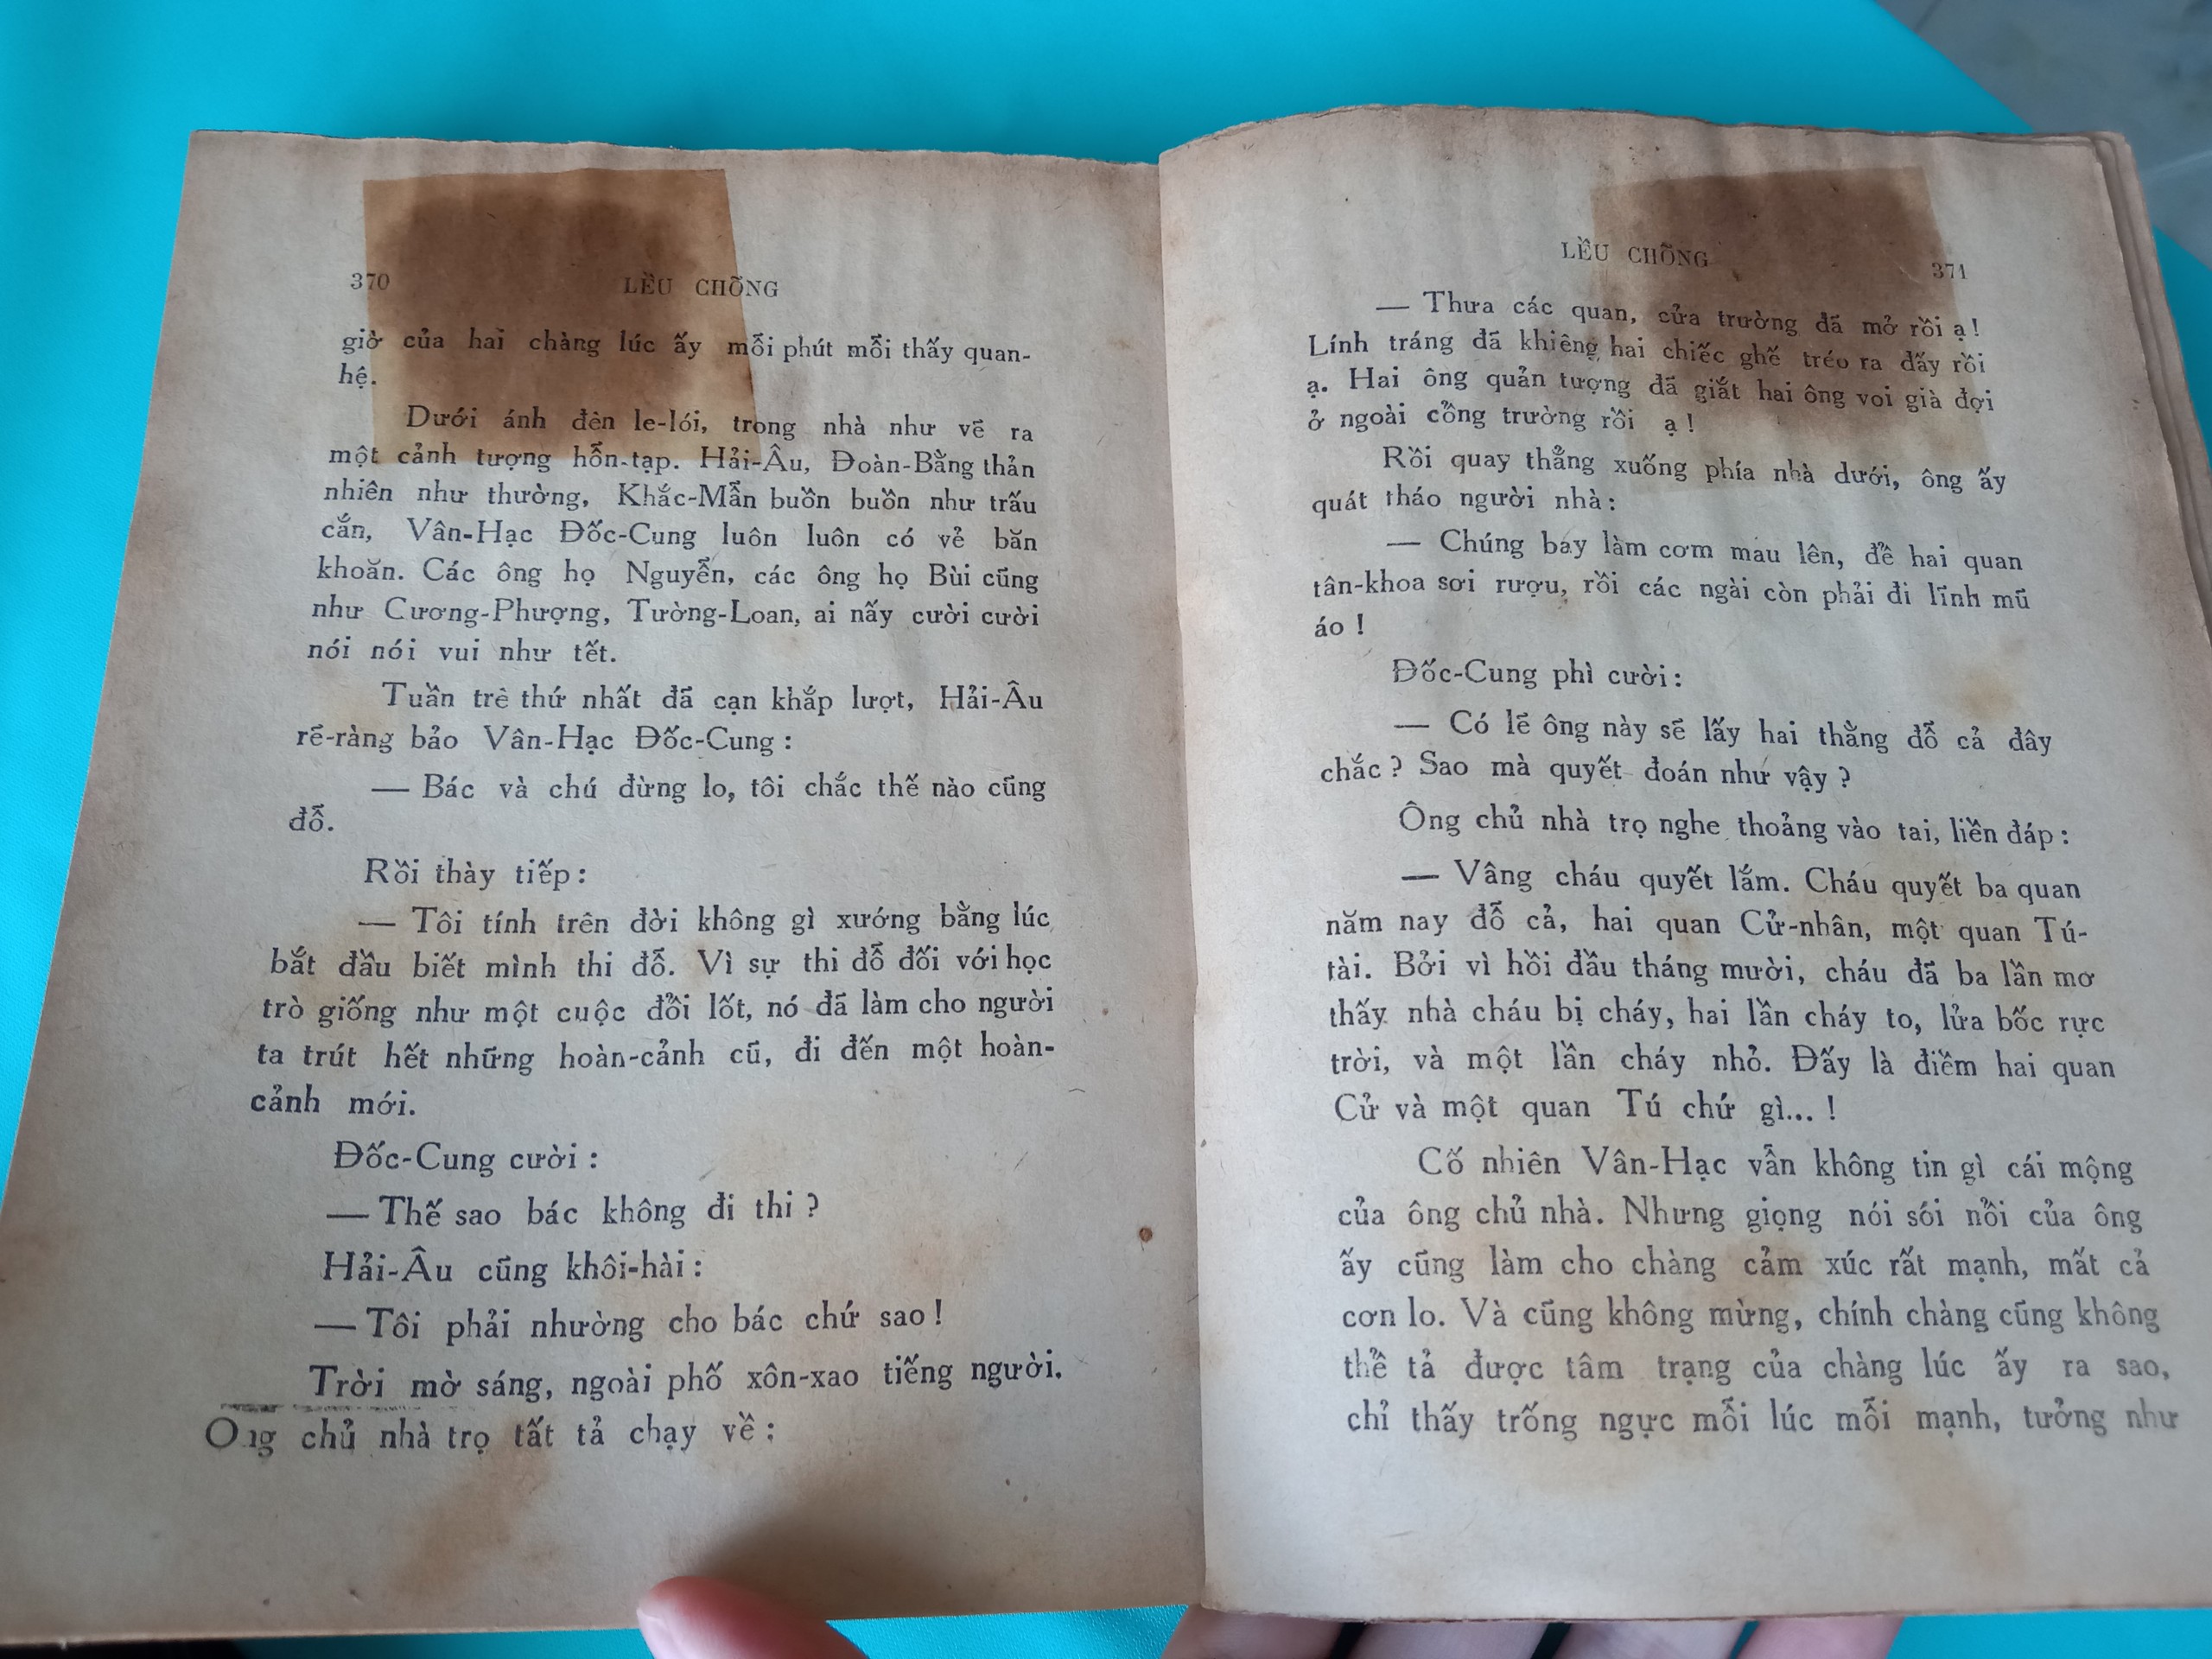 370 LỀU CHÕNG
giờ của hai chàng lúc ấy mỗi phút mỗi thấy quan-
hệ.
Dưới ánh đèn le-lói, trong nhà như vẽ ra
một cảnh tượng hỗn-tạp. Hải-Âu, Đoàn-Bằng thản
nhiên như thường, Khắc-Mẫn buồn buồn như trấu
cắn, Vân-Hạc Đốc-Cung luôn luôn có vẻ băn
khoăn. Các ông họ Nguyễn, các ông họ Bùi cũng
như Cương-Phượng, Tường-Loan, ai nấy cười cười
nói nói vui như tết.
Tuần trè thứ nhất đã cạn khắp lượt, Hải-Âu
rẽ-ràng bảo Vân-Hạc Đốc-Cung :
— Bác và chú đừng lo, tôi chắc thế nào cũng
đỗ.
Rồi thày tiếp :
— Tôi tính trên đời không gì xướng bằng lúc
bắt đầu biết mình thi đỗ. Vì sự thi đỗ đối với học
trò giống như một cuộc đổi lốt, nó đã làm cho người
ta trút hết những hoàn-cảnh cũ, đi đến một hoàn-
cảnh mới.
Đốc-Cung cười :
— Thế sao bác không đi thi ?
Hải-Âu cũng khôi-hài :
— Tôi phải nhường cho bác chứ sao !
Trời mờ sáng, ngoài phố xôn-xao tiếng người.
Ông chủ nhà trọ tất tả chạy về :
LỀU CHÕNG 371
— Thưa các quan, cửa trường đã mở rồi ạ !
Lính tráng đã khiêng hai chiếc ghế tréo ra đấy rồi
ạ. Hai ông quản tượng đã giắt hai ông voi già đợi
ở ngoài cổng trường rồi ạ !
Rồi quay thẳng xuống phía nhà dưới, ông ấy
quát tháo người nhà :
— Chúng bay làm cơm mau lên, để hai quan
tân-khoa sơi rượu, rồi các ngài còn phải đi lĩnh mũ
áo !
Đốc-Cung phì cười :
— Có lẽ ông này sẽ lấy hai thằng đỗ cả đây
chắc ? Sao mà quyết đoán như vậy ?
Ông chủ nhà trọ nghe thoảng vào tai, liền đáp :
— Vâng cháu quyết lắm. Cháu quyết ba quan
năm nay đỗ cả, hai quan Cử-nhân, một quan Tú-
tài. Bởi vì hồi đầu tháng mười, cháu đã ba lần mơ
thấy nhà cháu bị cháy, hai lần cháy to, lửa bốc rực
trời, và một lần cháy nhỏ. Đấy là điềm hai quan
Cử và một quan Tú chứ gì... !
Cố nhiên Vân-Hạc vẫn không tin gì cái mộng
của ông chủ nhà. Nhưng giọng nói sói nổi của ông
ấy cũng làm cho chàng cảm xúc rất mạnh, mất cả
cơn lo. Và cũng không mừng, chính chàng cũng không
thể tả được tâm trạng của chàng lúc ấy ra sao,
chỉ thấy trống ngực mỗi lúc mỗi mạnh, tưởng như